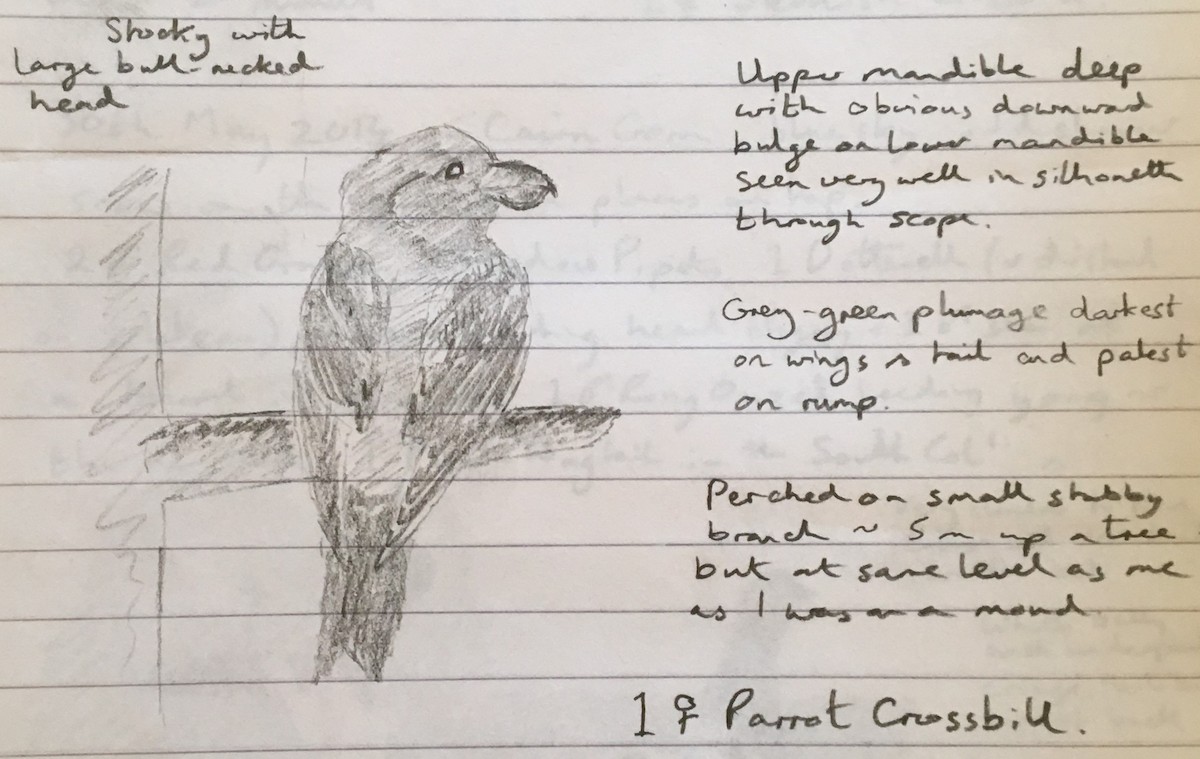 Stocky with
large bull-necked
head
Upper mandible deep
with obvious downward
bulge on lower mandible
seen very well in silhouette
through scope.
Grey-green plumage darkest
on wings & tail and palest
on rump.
Perched on small stubby
branch ~ 5m up a tree
but at same level as me
as I was on a mound
1 ♀ Parrot Crossbill.